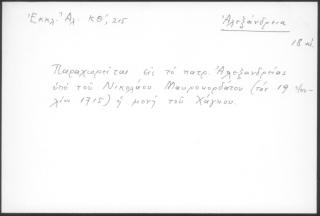 Ἐκκλ. Ἀλ. ΚΘ', 215
Ἀλεξάνδρεια
18 αἰ.
Παραχωρεῖται εἰς τὸ πατρ. Ἀλεξανδρείας
ὑπὸ τοῦ Νικολάου Μαυροκορδάτου (τὴν 19 Ἰου-
λίου 1715) ἡ μονὴ τοῦ Χάγκου.